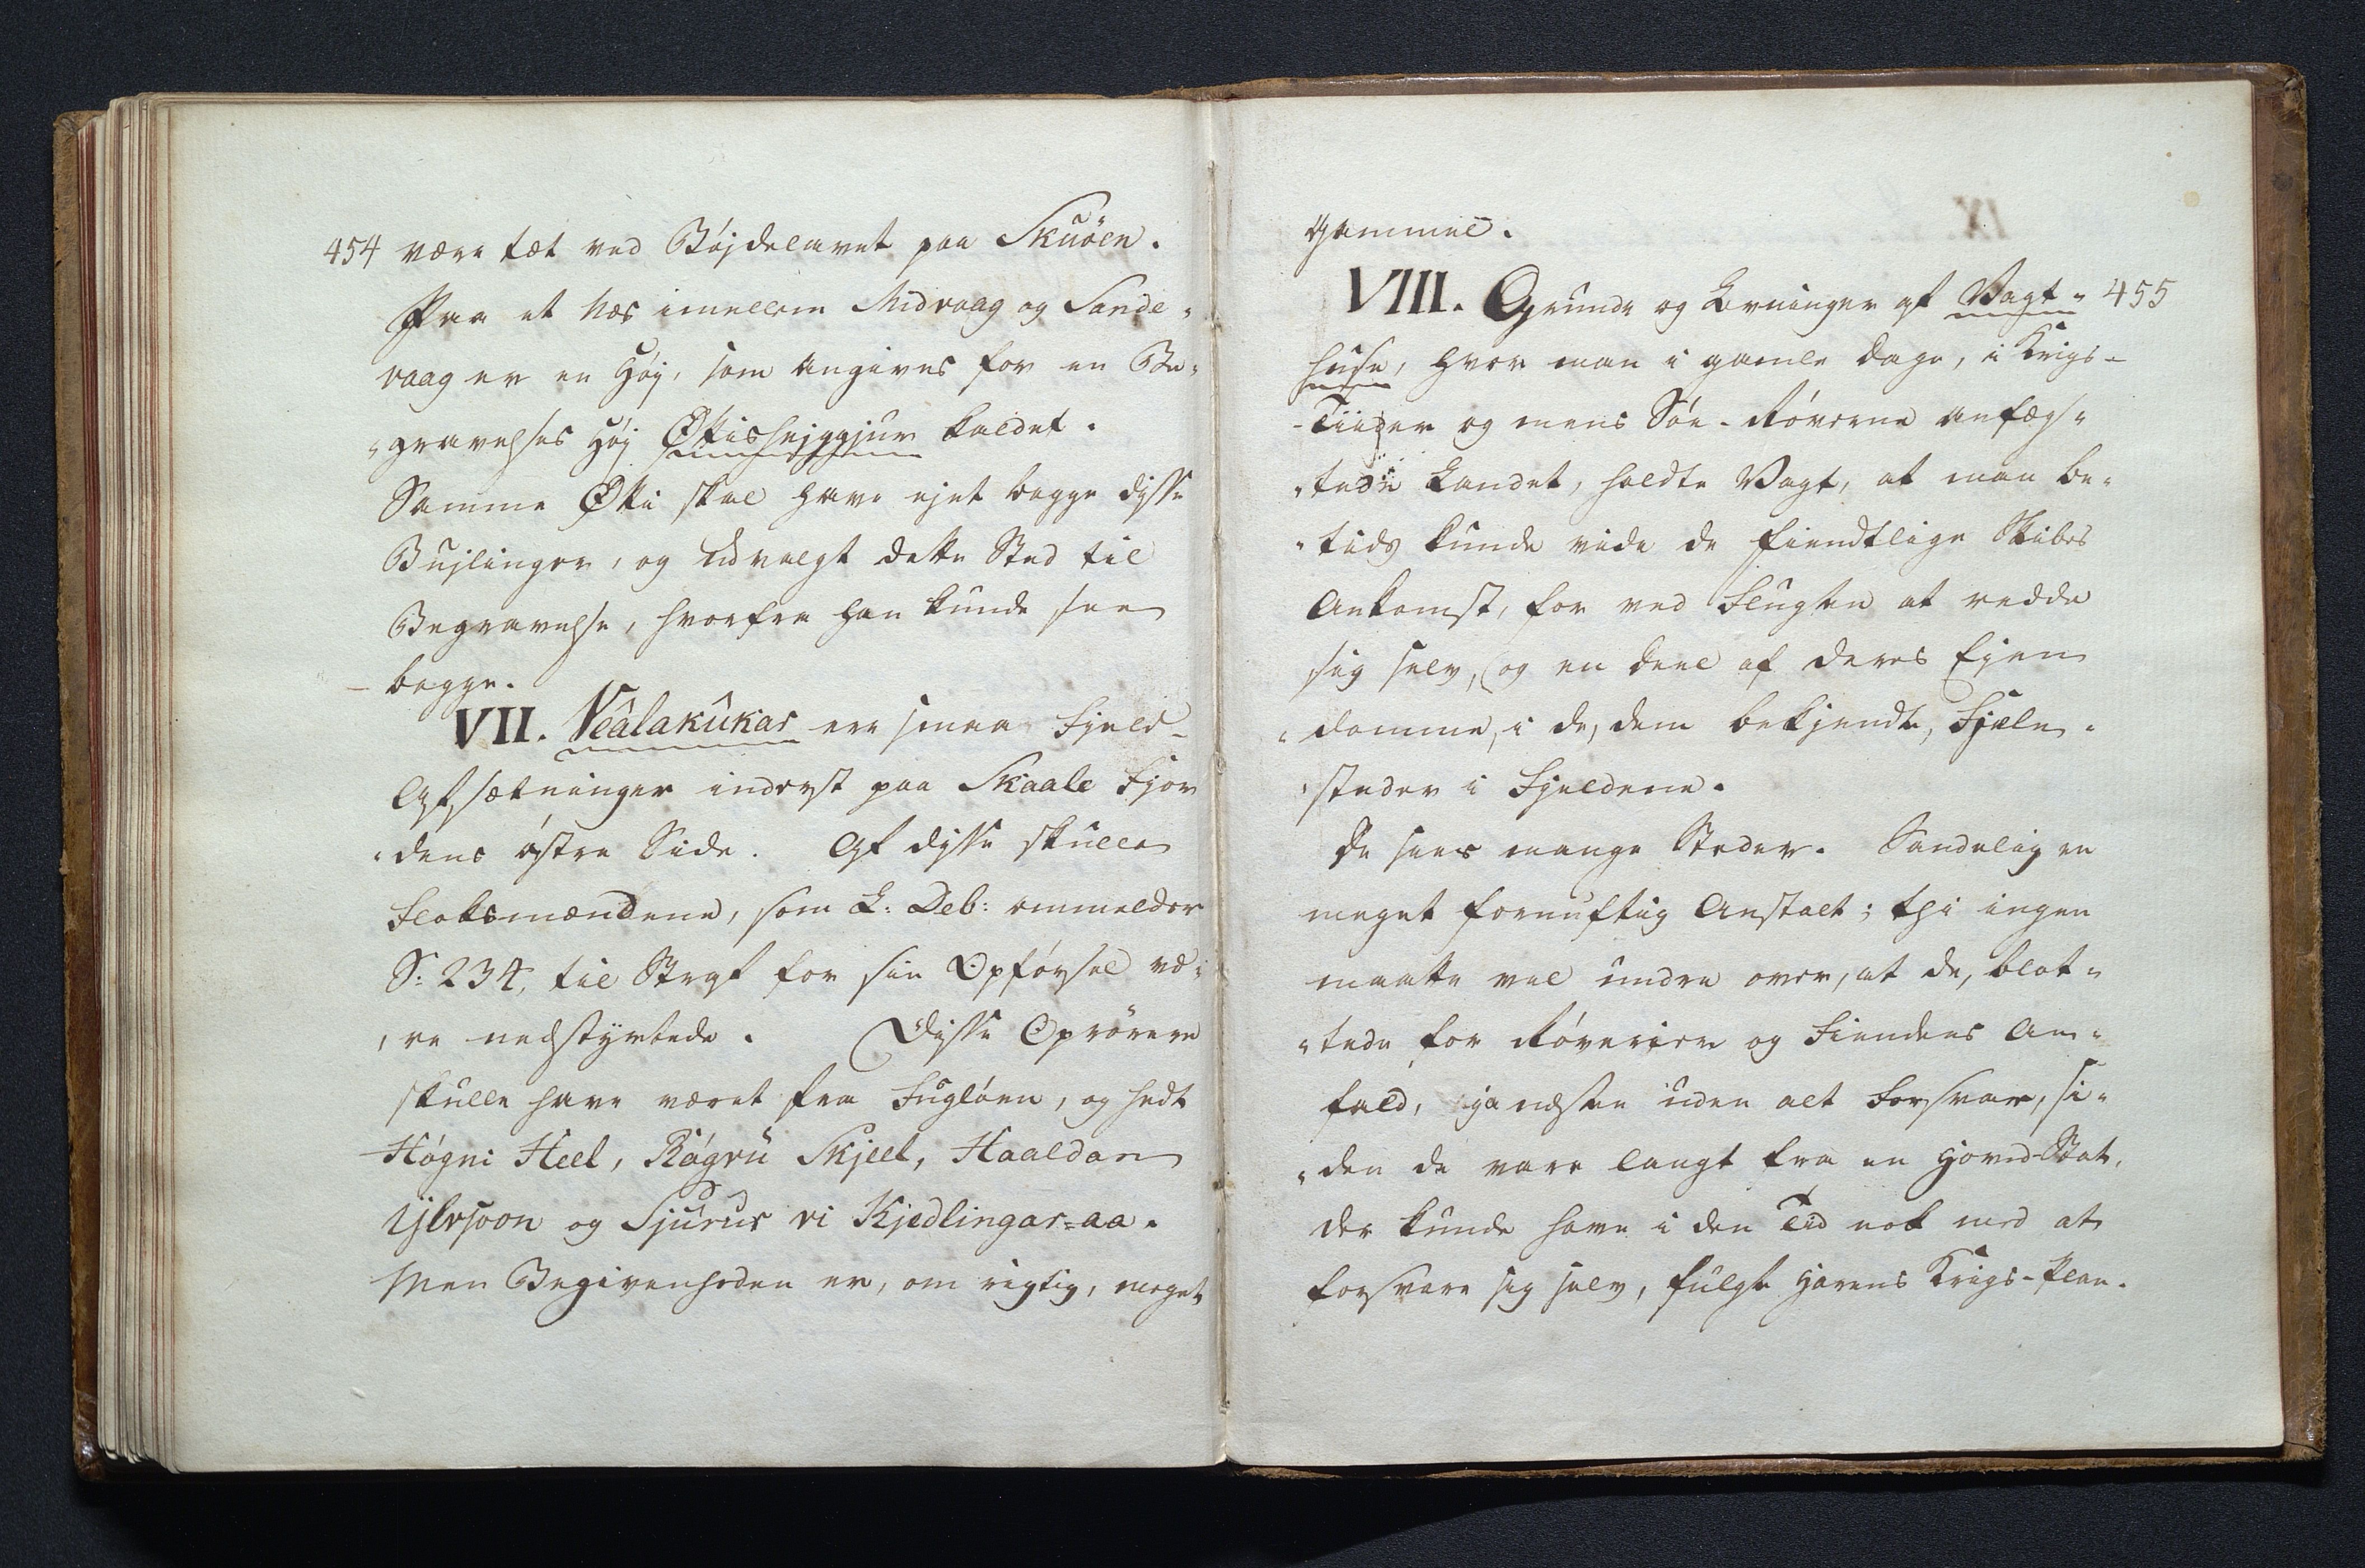 454 være tæt ved Böjdelavet paa Skuöen.
Paa et Næs imellem Midvaag og Sande-
vaag er en Höj, som angives for en Be-
-gravelses Höj Østisheyggjur kaldet.
Samme Østi skal have ejet begge disse
Bujlinger, og udvalgt dette Sted til
Begravelse, hvorfra han kunde see
begge.
VII. Veâlakûkar ere smaa Fjeld-
Afsætninger inderst paa Skaale Fjor
-dens östre Side. Af disse skulle
Floksmændene, som L: Deb: ommelder
S: 234, til Straf for sin Opförsel væ-
-re nedstyrtede. Disse Oprörere
skulle have været fra Fuglöen, og hedt
Högni Heel, Rógvu Skjeel, Haaldan
Ulvsoon og Sjúrur vi Kjedlingar=aa.
Men Begivenheden er, om rigtig, meget
gammel.
VIII. Grunde og Levninger af Vagt- 455
huse, hvor man i gamle Dage, i Krigs-
-Tiider og mens Söe-Röverne anfæg-
-tede Landet, holdte Vagt, at man be-
-tids kunde vide de fiendtlige Skibes
Ankomst, for ved Flugten at redde
sig selv, (og en Deel af deres Ejen
-domme, i de, dem bekjendte, Fjele-
-steder i Fjeldene.
De sees mange Steder. Sandelig en
meget fornuftig Anstalt; thi ingen
maatte vel undre over, at de, blot-
-tede for Röverier og Fiendens An-
fald, ja næsten uden alt Forsvar, si-
-den de vare langt fra en Hoved-Stat,
der kunde have i den Tid nok med at
forsvare sig selv, fulgte Harens Krigs-Plan.